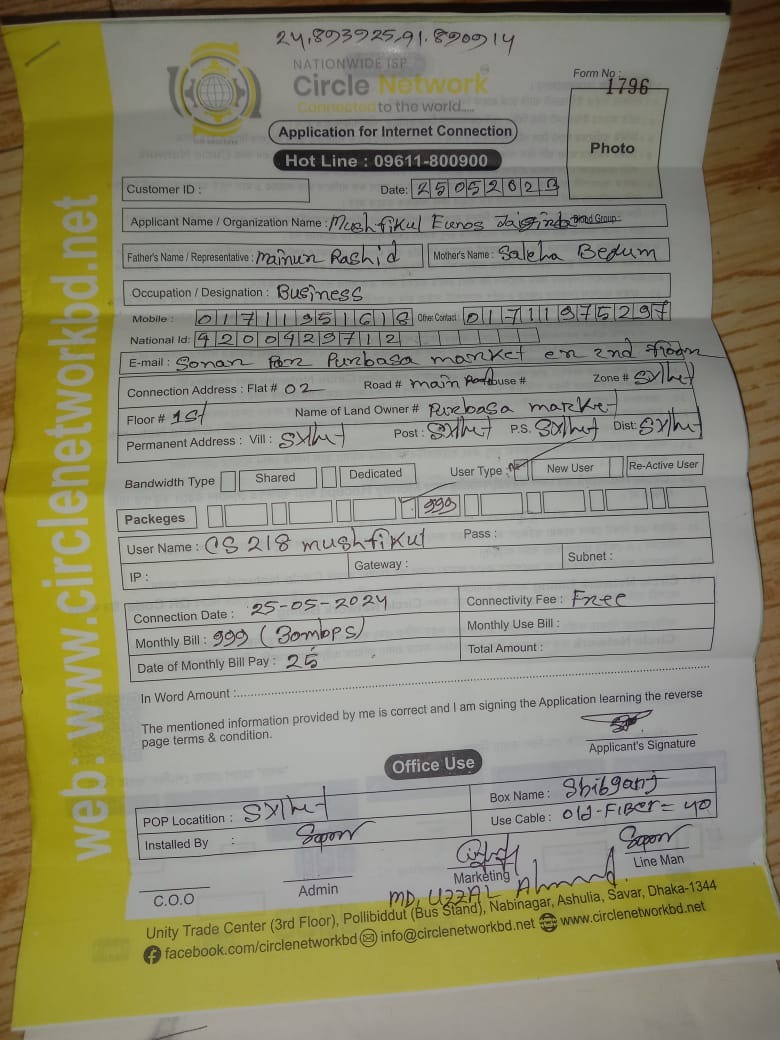 24.893925,91.890914
NATIONWIDE ISP
Circle Network
Connected to the world.....
Form No : 1796
Application for Internet Connection
Photo
Hot Line : 09611-800900
Customer ID :
Date: 2505202
Applicant Name / Organization Name : Mushfikul Eunos Brand Group:
Father's Name / Representative : Mainur Rashid Mother's Name : Saleha Begum
Occupation / Designation : Business
Mobile : 01711951618 Other Contact : 01711975297
National Id: 4200429712
E-mail : Sonar Purbasa market 2nd
Connection Address : Flat # 02 Road # main Road House # Zone # Sylhet
Floor # 1st Name of Land Owner # Purbasa market
Permanent Address : Vill : Sylhet Post : Sylhet P.S. Sylhet Dist: Sylhet
Bandwidth Type Shared Dedicated User Type New User Re-Active User
Packeges 999
User Name : CS218 mushfikul Pass :
IP : Gateway : Subnet :
Connection Date : 25-05-2024 Connectivity Fee : Free
Monthly Bill : 999 (30mbps) Monthly Use Bill :
Date of Monthly Bill Pay : 25 Total Amount :
In Word Amount :
The mentioned information provided by me is correct and I am signing the Application learning the reverse
page terms & condition.
Applicant's Signature
Office Use
POP Locatition : Sylhet Box Name : Shibganj
Installed By : Use Cable : Old-Fiber = 40
C.O.O Admin Marketing Line Man
MD, UZZAL Ahmad
Unity Trade Center (3rd Floor), Pollibiddut (Bus Stand), Nabinagar, Ashulia, Savar, Dhaka-1344
facebook.com/circlenetworkbd info@circlenetworkbd.net www.circlenetworkbd.net
web: www.circlenetworkbd.net